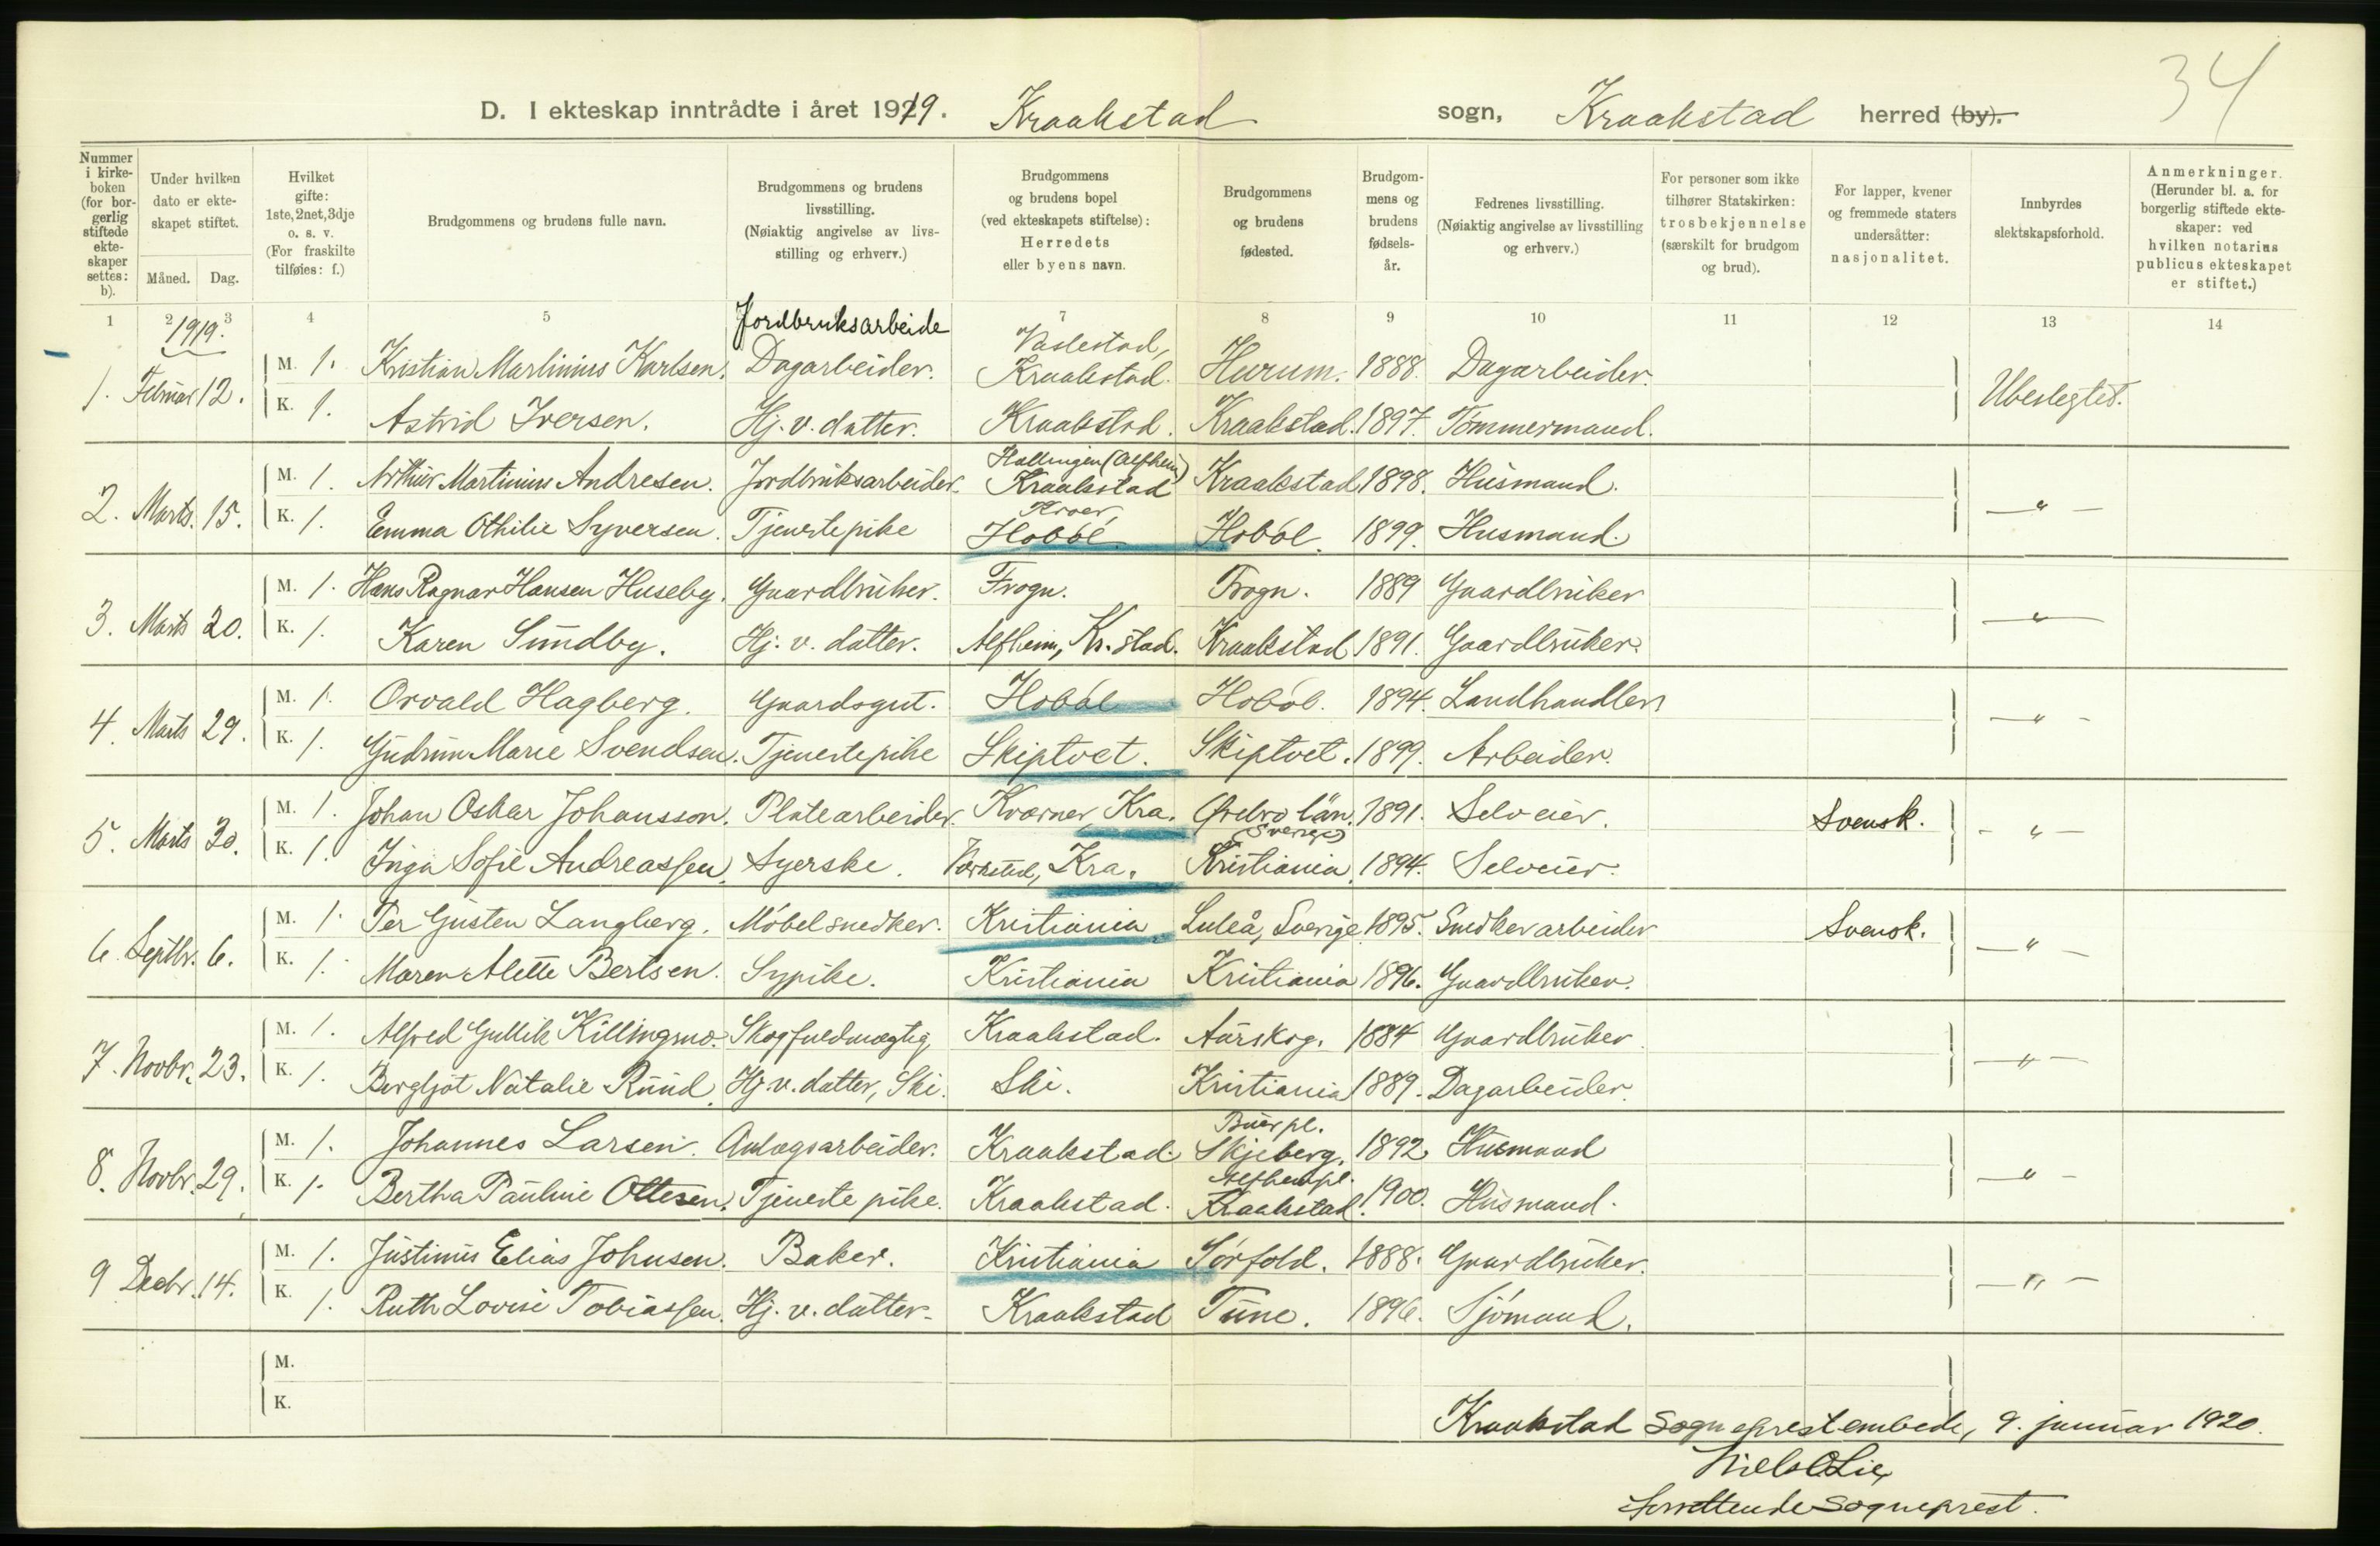 34
D. I ekteskap inntrådte i året 1919. Kraakstad sogn, Kraakstad herred (by).
Nummer i kirke-boken (for bor-gerlig stiftede ekte-skaper settes: b).
Under hvilken dato er ekte-skapet stiftet.
Måned. Dag.
Hvilket gifte: 1ste, 2net, 3dje o. s. v. (For fraskilte tilføies: f.)
Brudgommens og brudens fulle navn.
Brudgommens og brudens livsstilling. (Nøiaktig angivelse av livs-stilling og erhverv.)
Brudgommens og brudens bopel (ved ekteskapets stiftelse): Herredets eller byens navn.
Brudgommens og brudens fødested.
Brudgom-mens og brudens fødsels-år.
Fedrenes livsstilling. (Nøiaktig angivelse av livsstilling og erhverv.)
For personer som ikke tilhører Statskirken: trosbekjennelse (særskilt for brudgom og brud).
For lapper, kvener og fremmede staters undersåtter: nasjonalitet.
Innbyrdes slektskapsforhold.
Anmerkninger. (Herunder bl. a. for borgerlig stiftede ekte-skaper: ved hvilken notarius publicus ekteskapet er stiftet.)
1 2 3 4 5 7 8 9 10 11 12 13 14
1919.
Jordbruksarbeide
Vaslestad,
1. Februar 12. M. 1. Kristian Martinius Karlsen. Dagarbeider. Kraakstad. Hurum. 1888. Dagarbeider. Ubeslegtet.
K. 1. Astrid Iversen. Hj. v. datter. Kraakstad. Kraakstad. 1897. Tømmermand.
Hallingen (Alfheim)
2. Marts. 15. M. 1. Arthur Martinius Andresen. Jordbruksarbeider. Kraakstad Kraakstad 1898. Husmand. — " —
Kroer,
K. 1. Emma Othilie Syversen. Tjenestepike Hobøl Hobøl. 1899. Husmand.
3. Marts 20. M. 1. Hans Ragnar Hansen Huseby. Gaardbruker. Frogn. Frogn. 1889 Gaardbruker — " —
K. 1. Karen Sundby. Hj. v. datter. Alfheim, Kr.stad. Kraakstad 1891. Gaardbruker.
4. Marts 29. M. 1. Orvald Hagberg. Gaardsgut. Hobøl Hobøl. 1894. Landhandler — " —
K. 1. Gudrun Marie Svendsen. Tjenestepike Skiptvet. Skiptvet. 1899. Arbeider.
5. Marts 30. M. 1. Johan Oskar Johansson. Platearbeider. Kværner, Kra. Ørebro län. 1891. Selveier. Svensk. — " —
(Sverige)
K. 1. Inga Sofie Andreassen. Syerske. Kra. Kristiania. 1894. Selveier.
6. Septbr. 6. M. 1. Per Gusten Langberg. Møbelsnedker. Kristiania Luleå, Sverige 1895. Snedkerarbeider Svensk. — " —
K. 1. Maren Alette Bertsen. Sypike. Kristiania Kristiania 1896. Gaardbruker.
7. Novbr. 23. M. 1. Alfred Gullik Killingmo. Skogfuldmægtig Kraakstad. Aurskog. 1884 Gaardbruker. — " —
K. 1. Bergljot Natalie Ruud. Hj. v. datter, Ski. Ski. Kristiania 1889. Dagarbeider.
Buer pl.
8. Novbr. 29. M. 1. Johannes Larsen. Anlægsarbeider. Kraakstad. Skjeberg. 1892 Husmand — " —
K. 1. Bertha Pauline Ottesen. Tjeneste pike. Kraakstad. Kraakstad. 1900. Husmand.
9 Decbr. 14. M. 1. Justinus Elias Johnsen. Baker. Kristiania Sørfold. 1888. Gaardbruker. — " —
K. 1. Ruth Lovise Tobiassen. Hj. v. datter. Kraakstad Tune. 1896. Sjømand.
M.
K.
Kraakstad sogneprestembede, 9. januar 1920.
Niels Lie,
Sogneprest.